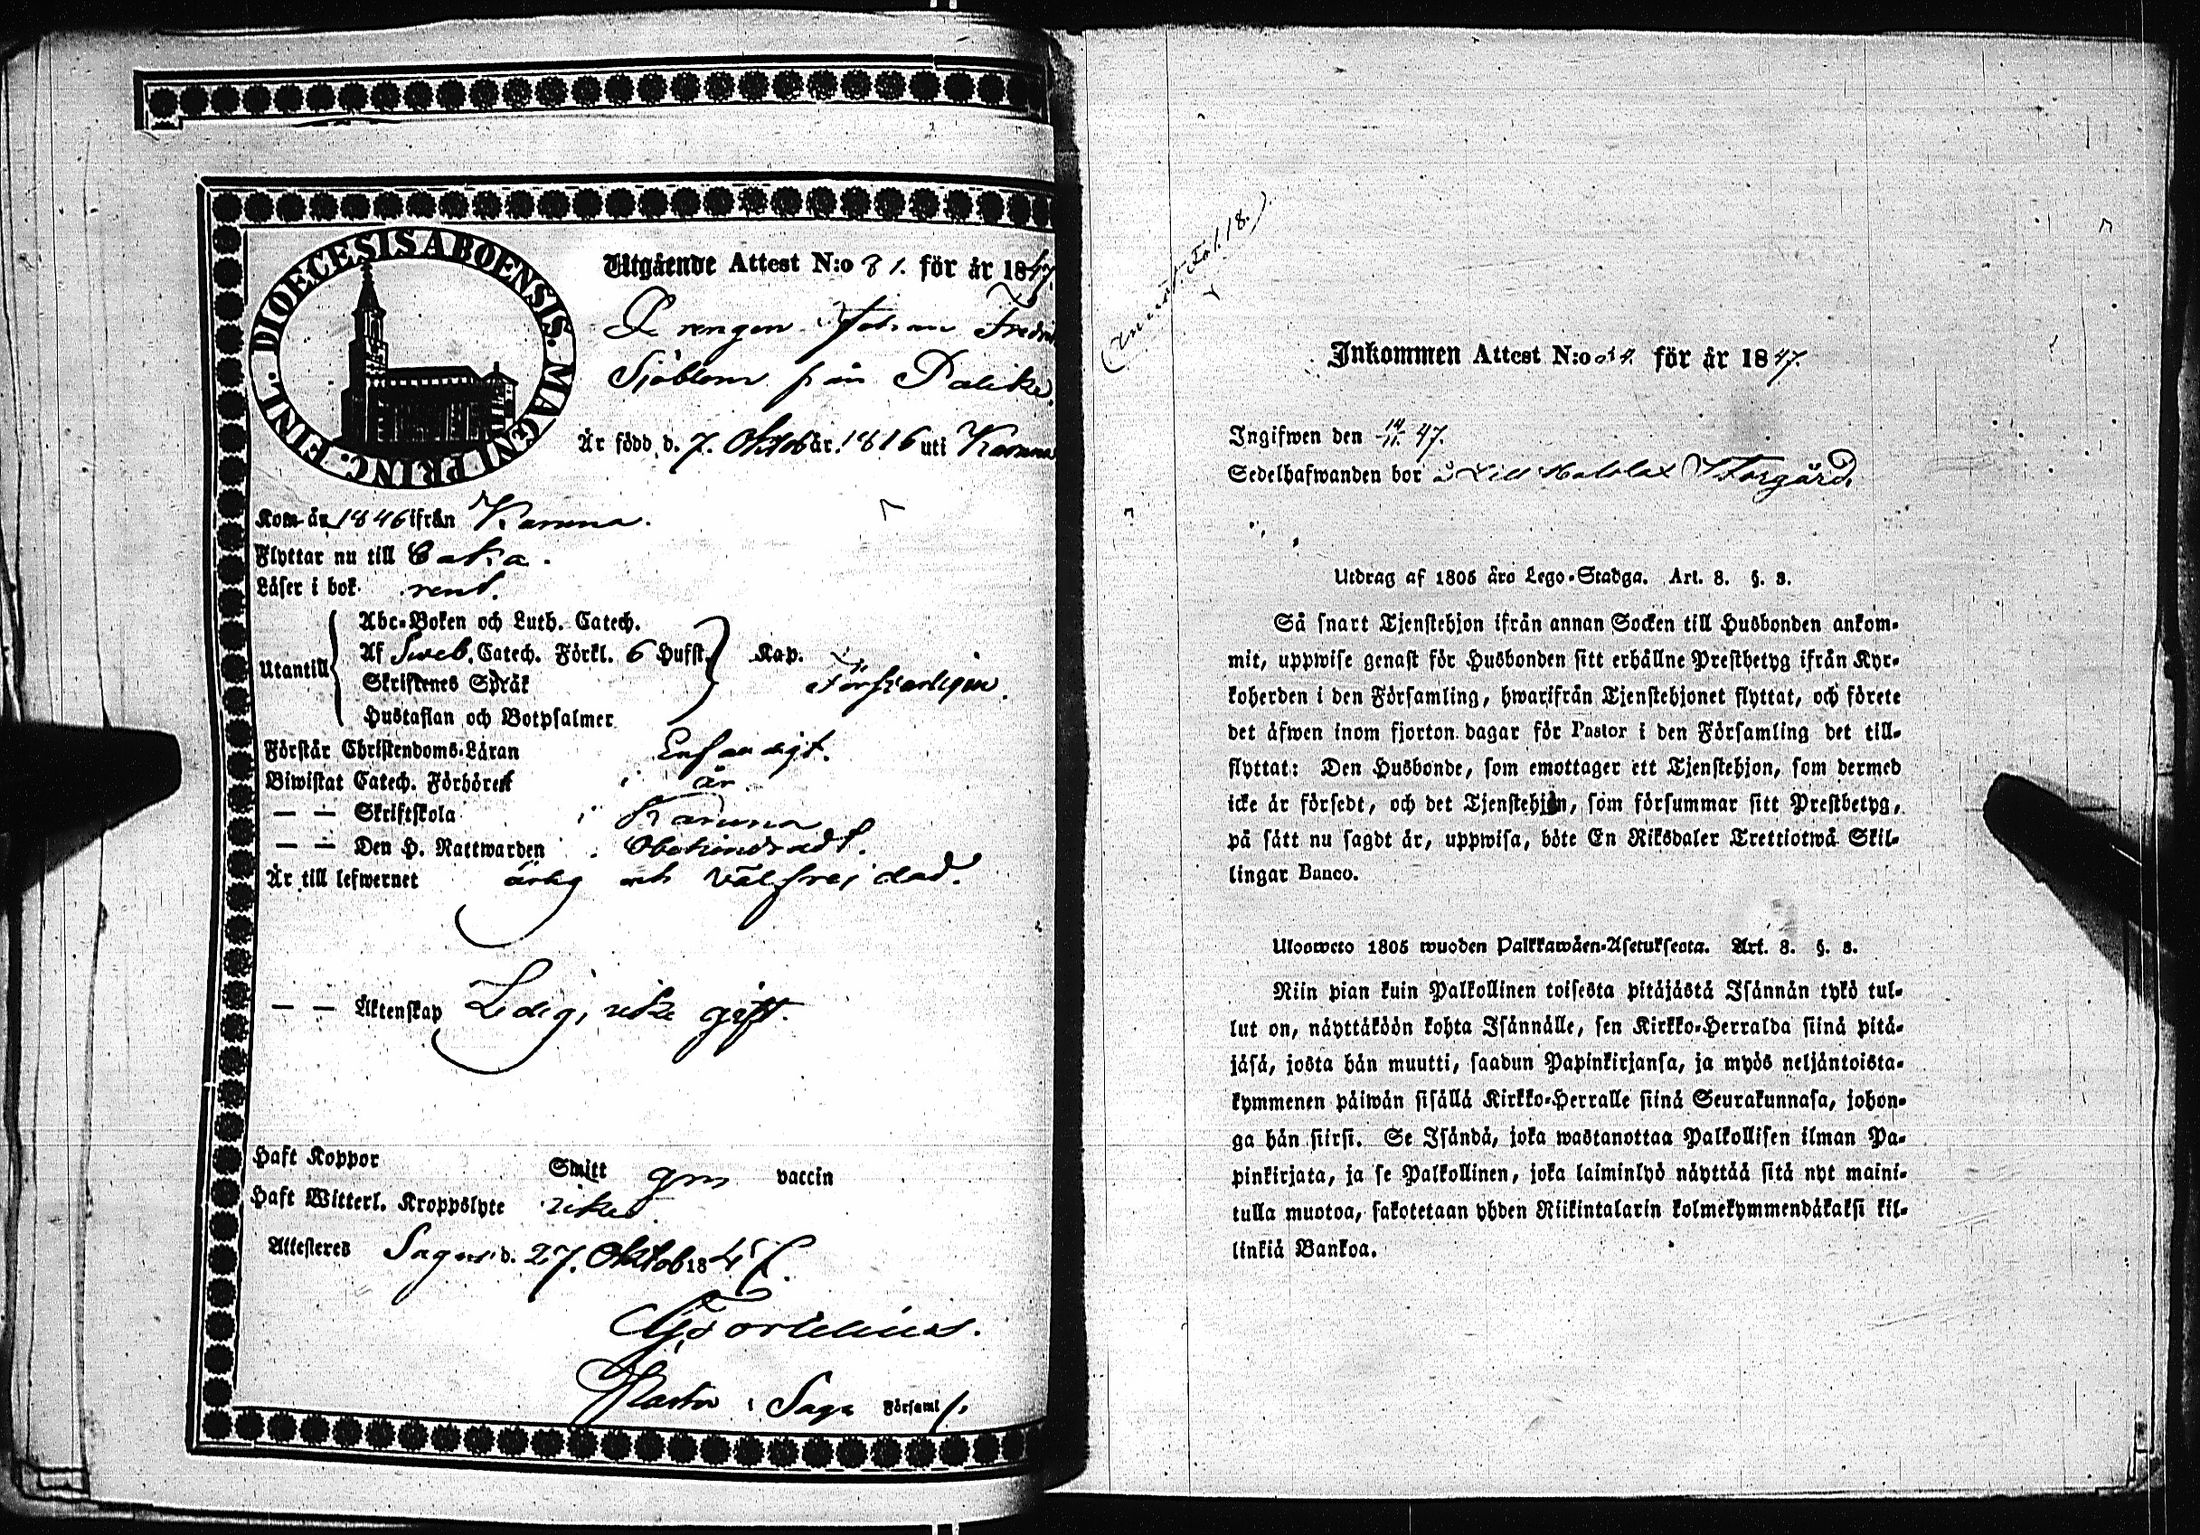 DIOECESIS ABOENSIS. MAGNI PRINC. FINL.
Utgående Attest N:o 81. för år 1847.
Drengen Johan Fredrik
Sjöblom från Palike.
Är född d. 7. Oktob år. 1816 uti Karuna
Kom år 1846 ifrån Karuna.
Flyttar nu till
Läser i bok rent.
Utantill
Abc-Boken och Luth. Catech.
Af Sweb. Catech. Förkl. 6 Hufst. Kap.
Skriftenes Språk Försvarligen.
Hustaflan och Botpsalmer
Förstår Christendoms-Läran Enfaldigt.
Biwistat Catech. Förhören i år
— — Skriftskola i Karuna
— — Den H. Nattwarden Obehindradt.
Är till lefwernet ärlig och välfrejdad.
— — Äktenskap Ledig, icke gift.
Haft Koppor Smitt gm vaccin
Haft Witterl. Kroppslyte icke
Attesteres Sagu d. 27. Oktob 1847.
Pastor i Sagu Församl.
Inkommen Attest N:o 54. för år 1847.
Ingifwen den 14/11 47.
Sedelhafwanden bor å Lill Storgård.
Utdrag af 1805 års Lego-Stadga. Art. 8. §. 3.
Så snart Tjenstehjon ifrån annan Socken till Husbonden ankom-
mit, uppwise genast för Husbonden sitt erhållne Prestbetyg ifrån Kyr-
koherden i den Församling, hwarifrån Tjenstehjonet flyttat, och förete
det äfwen inom fjorton dagar för Pastor i den Församling det till-
flyttat: Den Husbonde, som emottager ett Tjenstehjon, som dermed
icke är försedt, och det Tjenstehjon, som försummar sitt Prestbetyg,
på sätt nu sagdt är, uppwisa, böte En Riksdaler Trettiotwå Skil-
lingar Banco.
Ulosweto 1805 wuoden Palkkawäen-Asetuksesta. Art. 8. §. 3.
Niin pian kuin Palkollinen toisesta pitäjästä Isännän tykö tul-
lut on, näyttäköön kohta Isännälle, sen Kirkko-Herralda siinä pitä-
jäsä, josta hän muutti, saadun Papinkirjansa, ja myös neljäntoista-
kymmenen päiwän sisällä Kirkko-Herralle siinä Seurakunnasa, johon-
ga hän siirsi. Se Isändä, joka wastanottaa Palkollisen ilman Pa-
pinkirjata, ja se Palkollinen, joka laiminlyö näyttää sitä nyt maini-
tulla muotoa, sakotetaan yhden Riikintalarin kolmekymmendäkaksi kil-
linkiä Bankoa.